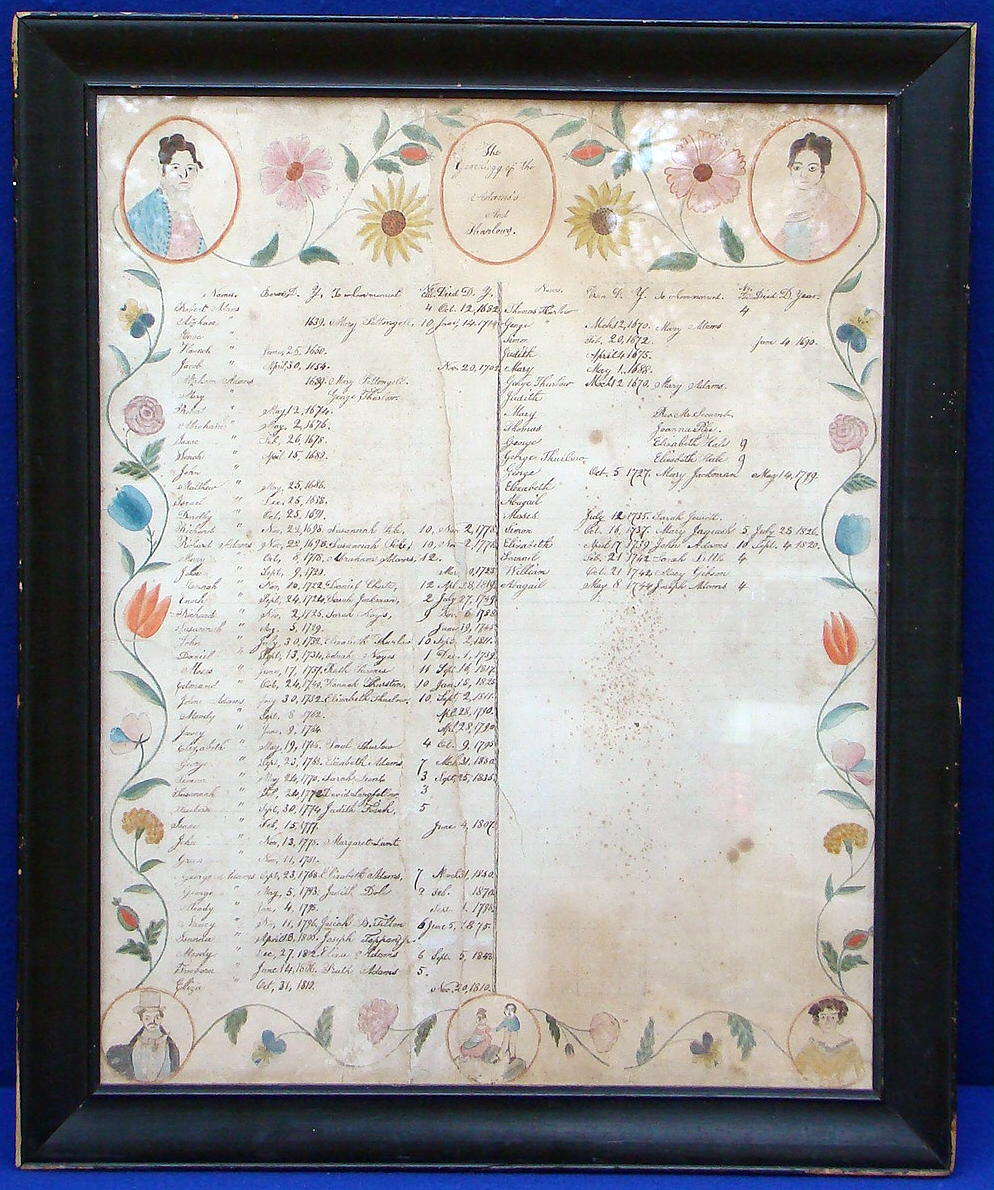 The
Genealogy of the
Adams's
And
Thurlows.
Names. Born D. Y. To whom married Died D. Y.
Robert Adams 4 Oct. 12, 1682
Abraham " 1639. Mary Pettengell. 10 June, 14, 1714
Hannah " June, 25, 1650.
Jacob " April 30, 1654. Nov. 20, 1701
Abraham Adams 1639. Mary Pettongell.
Mary " George Thurlow.
" May 12, 1674.
Abraham " May, 2, 1676.
Isaac " Feb. 26, 1678.
Sarah " April 15, 1680.
John "
Matthew " May, 25, 1686.
Israel " Dec. 25, 1688.
Dorothy " Oct. 25, 1691.
Richard " Nov, 22, 1693. Susannah Pike, 10, Nov. 2, 1778
Richard Adams Nov, 22, 1693. Susannah Pike, 10, Nov. 2, 1778
Mary " Oct, 8, 1718, Abraham Adams, 12.
John " Sept, 9, 1721.
Hannah " Nov, 10, 1722, Daniel Chute, 12
Enoch " Sept, 24, 1724, Sarah Jackman, 2 July 27, 1749
Richard " Nov, 2, 1725, Sarah Noyes, 9
Susannah " Aug. 5, 1729.
John " July 30, 1732. Elizabeth Thurlow 10 Sept. 2, 1811.
Daniel " Sept, 13, 1734, Edna Noyes 1 Dec. 1, 1759
Moses " June, 17, 1737. Ruth
Edmund " Oct, 24, 1740. Hannah Thurston, 10 Jan. 18, 1825
John Adams July 30, 1732. Elizabeth Thurlow, 10, Sept 2, 1811.
Moody " Sept. 8 1762. Apl. 28, 1790.
" June, 9, 1764. Apl. 28, 1790
Elizabeth " May, 19, 1766. Paul Thurlow 4 Oct. 9, 1795
George " Sept, 23, 1768. Elizabeth Adams 7 Mch 31, 1850.
Simeon " May 24, 1770. Sarah Lunt 3 Sept, 25, 1835
Susannah " 1772 David 3
" Sept, 30, 1774 Judith 5
Isaac " Feb, 15, 1777. June 4, 1807
John " Nov, 13, 1778. Margaret Lunt
" Nov, 11, 1781.
George Adams Sept, 23, 1768. Elizabeth Adams, 7 March 31, 1850
George " May, 5, 1793. Judith Dole ? Feb. 1870
Moody " Jan, 4, 1795. Sept. 1. 1798
Nancy " Nov, 11, 1796, Josiah B. Tilton 6 June 5, 1875.
" April 8, 1800. Joseph Toppan, jr.
Moody " Dec, 27, 1802. Eliza Adams 6 Sept. 5, 1848
Freeborn " June 14, 1806. Ruth Adams 5.
Eliza " Oct, 31, 1810. Nov. 20, 1810.
Name. Born D. Y. To whom married. Died D. Year.
Thomas Thurlow 4
George " Mch 12, 1670. Mary Adams
Simon Feb. 20, 1672. June 4 1690.
Judith April 4 1675.
Mary May 1. 1688.
George Thurlow Mch 12 1670. Mary Adams.
Judith
Mary
Thomas Joanna
George Elizabeth Hale 9
George Thurlow Elizabeth Hale 9
George Oct. 5 1727. Mary Jackman May 14, 1789.
Elizabeth
Abigail
Moses July 12 1735. Sarah Jewett.
Simon Oct. 16, 1737. Mary Jaquish 5 July 25 1826.
Elizabeth April 17 1739. John Adams 10 Sept. 4 1820.
Samuel Feb. 21 1742 Sarah 4
William Oct. 21 1742 Mary Gibson
Abagail May 8 1744 Joseph Adams 4